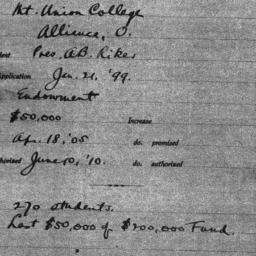 Mt. Union College
Alliance, O.
dent Pres. A.B. Riker
pplication Jan. 21, '99.
Endowment
$50,000 Increase
Apr. 18, '05 do. promised
horised June 10, '10. do. authorized
270 students.
Last $50,000 of $200,000 Fund.